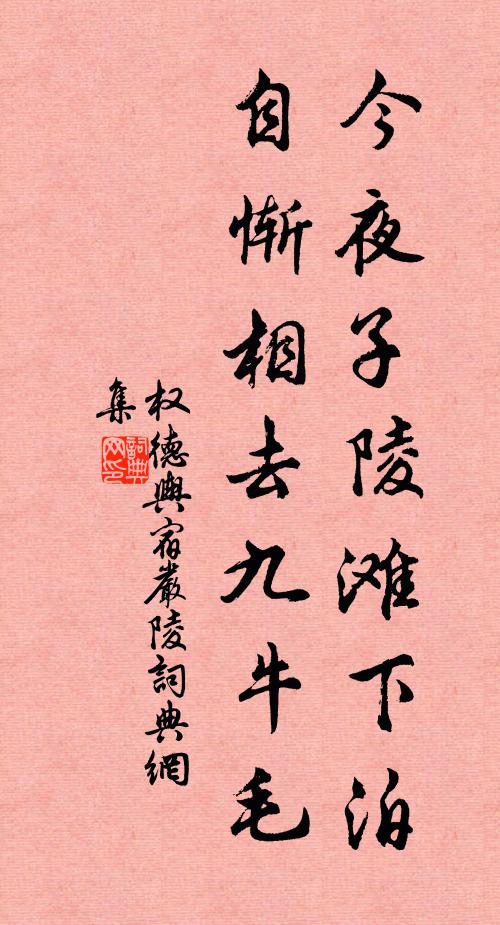 今夜子陵滩下泊
自惭相去九牛毛
权德舆宿嚴陵詞典網
集
詞典网印